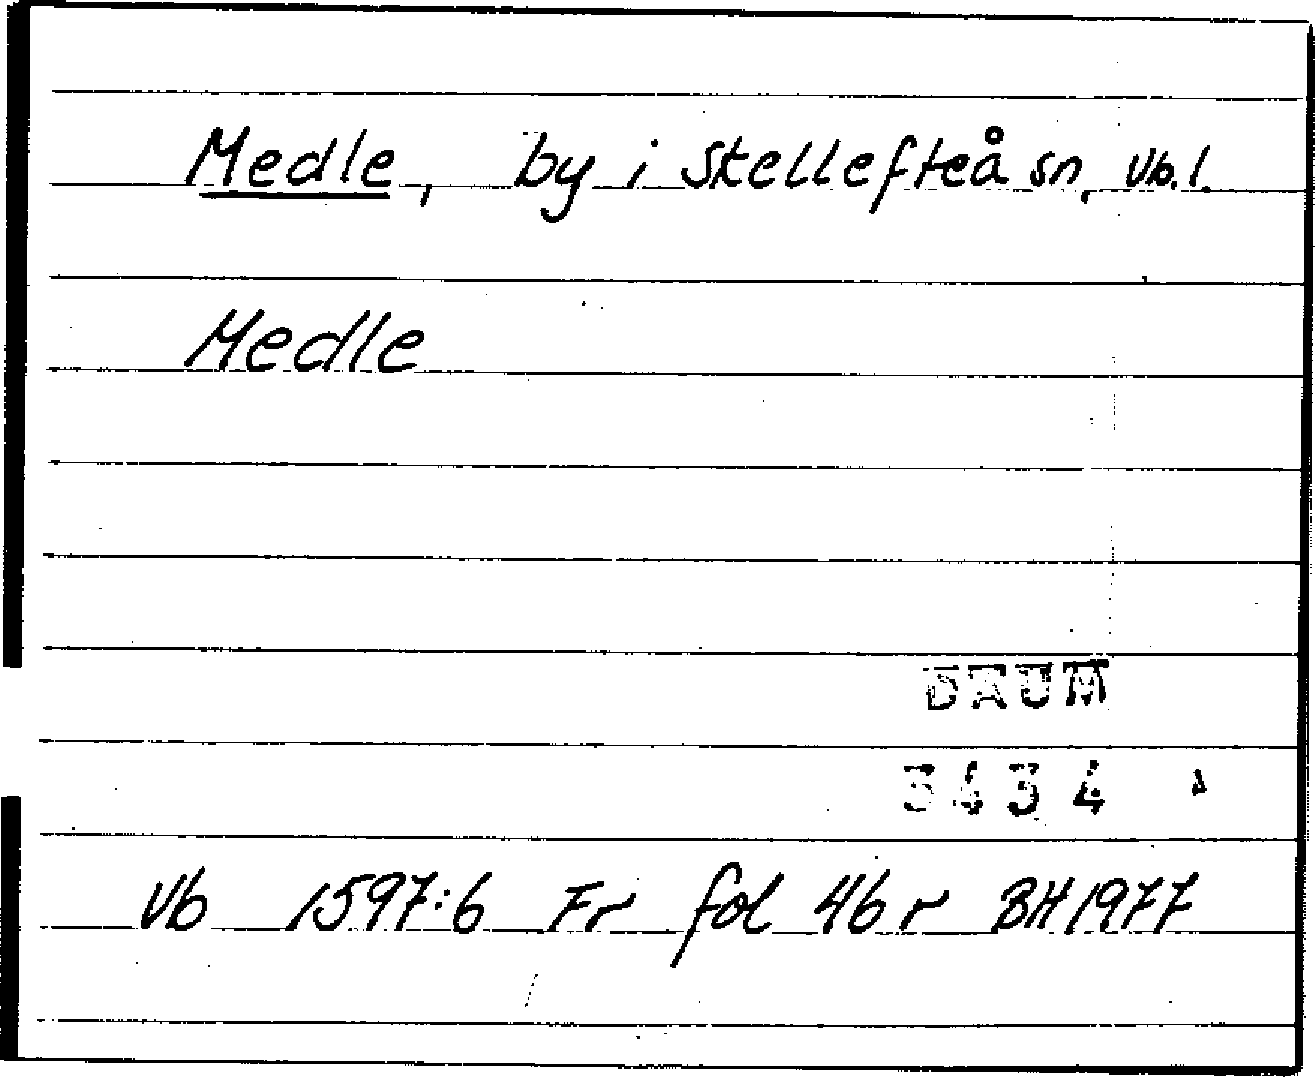 Medle, by i Skellefteå sn, Vb.l.
Medle
DAUM
3434
Vb 1597:6 Fr fol 46 r BH 1977